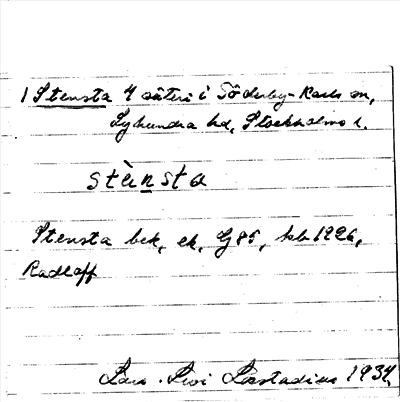 1 Stensta 4 säteri i Söderby-Karls sn,
Lyhundra hd, Stockholms l.
stènsta
Stensta bck, ek, G 85, hb 1226,
Radloff
Lars-Levi Læstadius 1934.